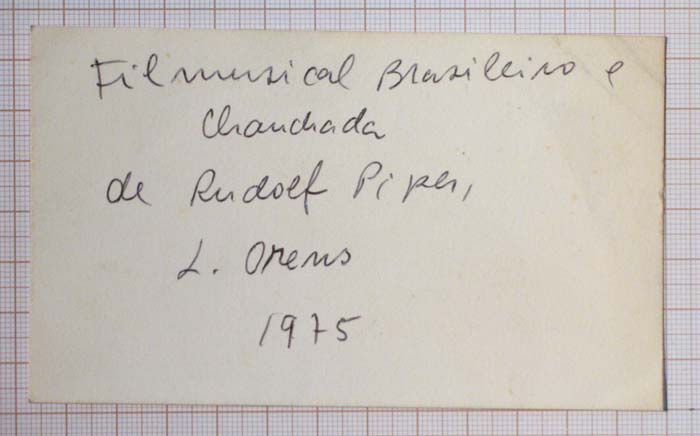 Filmusical Brasileiro e
Chanchada
de Rudolf Piper,
L. Orens
1975